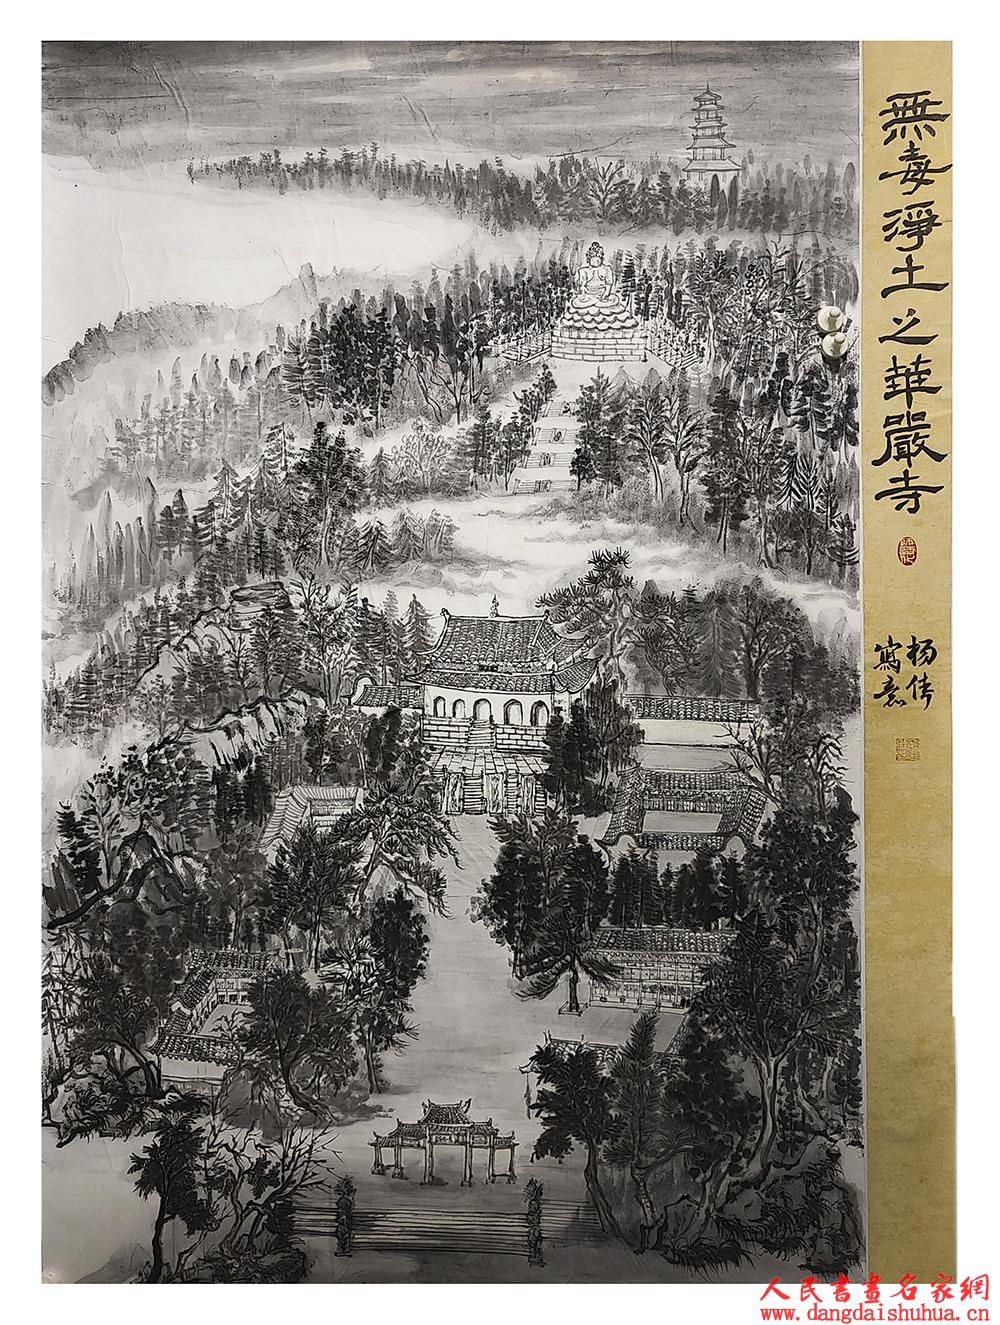 無毒淨土之華嚴寺
杨传
寫意
人民書畫名家網
www.dangdaishuhua.cn